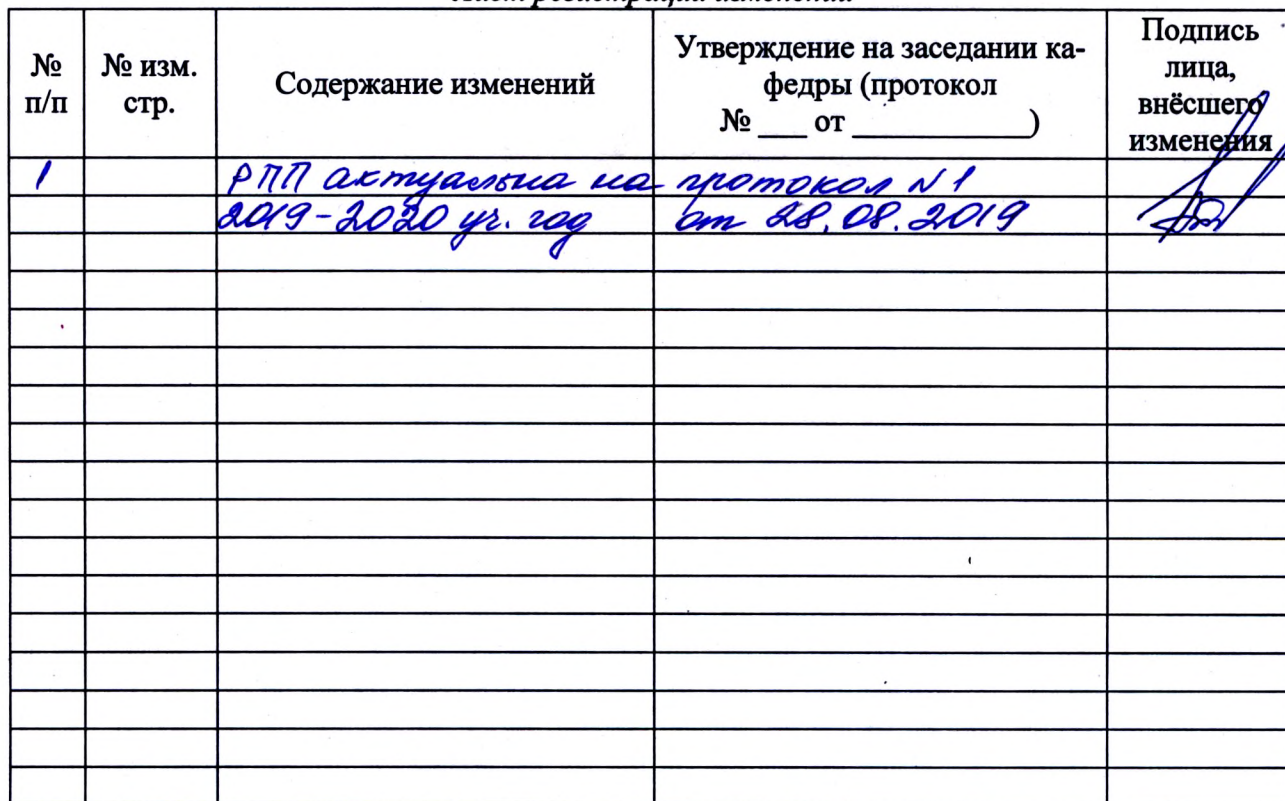 Лист регистрации изменений
№ п/п
№ изм. стр.
Содержание изменений
Утверждение на заседании ка-
федры (протокол
№ ___ от ___________)
Подпись
лица,
внёсшего
изменения
1
РПП актуальна на
2019-2020 уч. год
протокол N1
от 28.08.2019